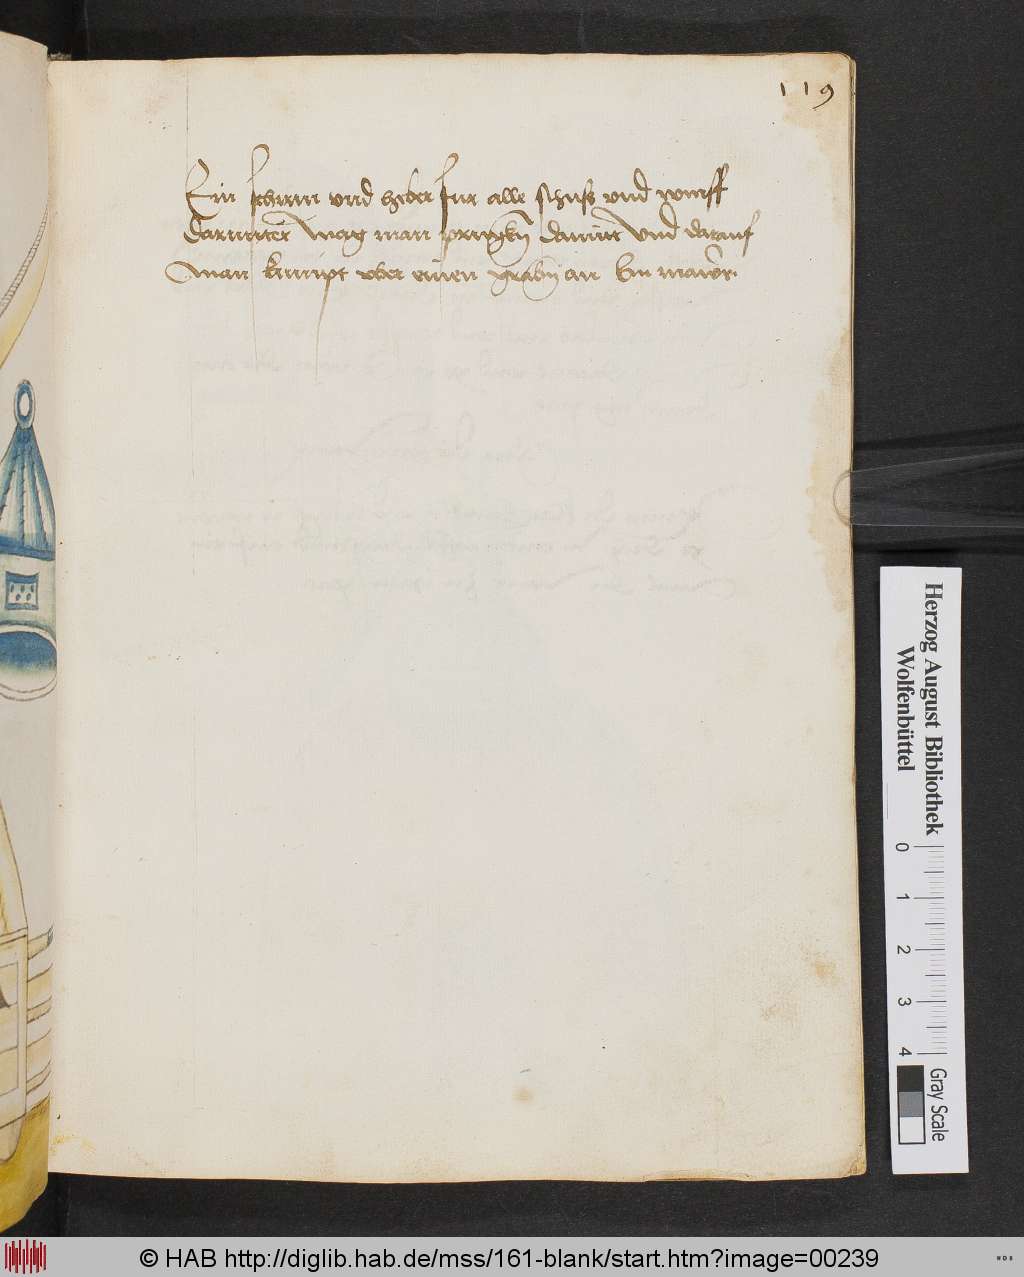 119
Ein schirm vnd heber fur alle schuß vnd wurff
darunter mag man prugken damitt vnd darauf
man kumpt vber einen graben an ein mawer
Herzog August Bibliothek
Wolfenbüttel
0 1 2 3 4
Gray Scale
© HAB http://diglib.hab.de/mss/161-blank/start.htm?image=00239